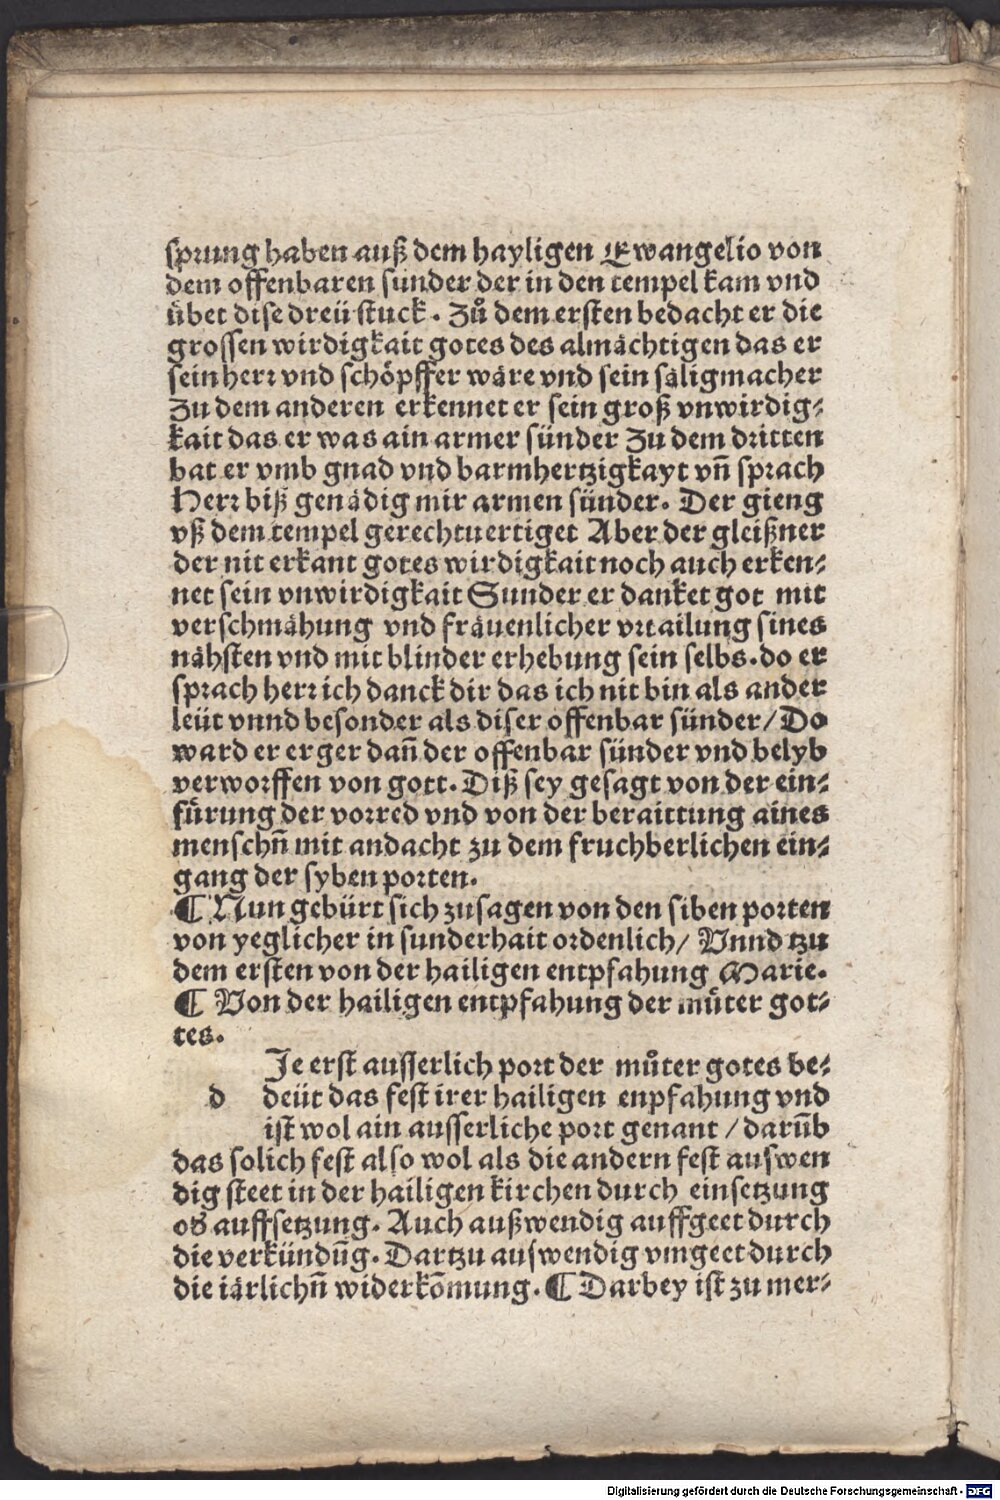 sprung haben auß dem hayligen Ewangelio von
dem offenbaren sunder der in den tempel kam vnd
uͤbet dise dreü stuck. Zuͦ dem ersten bedacht er die
grossen wirdigkait gotes des almaͤchtigen das er
sein herꝛ vnd schoͤpffer waͤre vnd sein saͤligmacher
Zu dem anderen erkennet er sein groß vnwirdig⸗
kait das er was ain armer sünder Zu dem dꝛitten
bat er vmb gnad vnd barmhertzigkayt vn̄ spꝛach
Herꝛ biß genaͤdig mir armen sünder. Der gieng
vß dem tempel gerechtuertiget Aber der gleißner
der nit erkant gotes wirdigkait noch auch erken⸗
net sein vnwirdigkait Sunder er danket got mit
verschmaͤhung vnd fraͤuenlicher vꝛtailung sines
naͤhsten vnd mit blinder erhebung sein selbs. do er
spꝛach herꝛ ich danck dir das ich nit bin als ander
leüt vnnd besonder als diser offenbar sünder/ Do
ward er erger dan̄ der offenbar sünder vnd belyb
verwoꝛffen von gott. Diß sey gesagt von der ein⸗
fuͤrung der voꝛred vnd von der beraittung aines
menschn̄ mit andacht zu dem fruchberlichen ein⸗
gang der syben poꝛten.
¶ Nun gebürt sich zusagen von den siben poꝛten
von yeglicher in sunderhait oꝛdenlich/ Vnnd tzu
dem ersten von der hailigen entpfahung Marie.
¶ Von der hailigen entpfahung der muͤter got⸗
tes.
Je erst ausserlich poꝛt der muͦter gotes be⸗
d deüt das fest irer hailigen enpfahung vnd
ist wol ain ausserliche poꝛt genant / darūb
das solich fest also wol als die andern fest auswen
dig steet in der hailigen kirchen durch einsetzung
od̕ auffsetzung. Auch außwendig auffgeet durch
die verkündūg. Dartzu auswendig vmgeet durch
die iaͤrlichn̄ widerkōmung. ¶ Darbey ist zu mer⸗
Digitalisierung gefördert durch die Deutsche Forschungsgemeinschaft - DFG